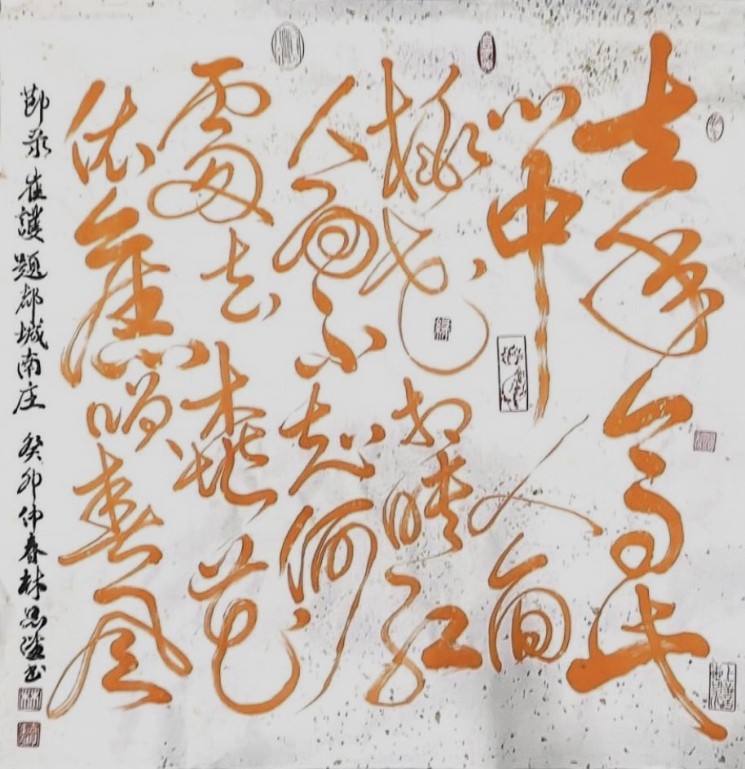 去年今日此
门中人面
桃花相映红
人面不知何
處去桃花
依舊咲春风
節录崔護題都城南庄 癸卯仲春林书